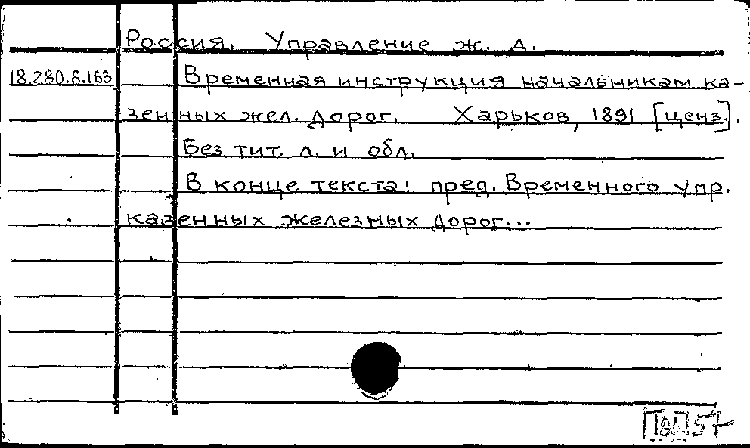 Россия. Управление ж. д.
18.280.8.163 Временная инструкция начальникам ка-
зенных жел. дорог. Харьков, 1891 [ценз].
Без тит. л. и обл.
В конце текста: пред. Временного упр.
казенных железных дорог...